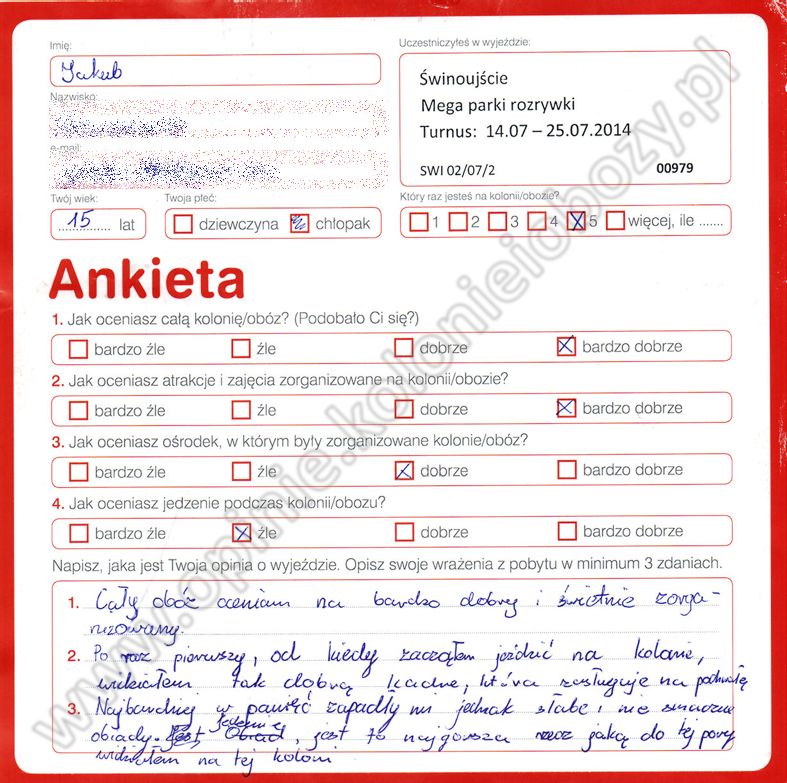 Imię:
Uczestniczyłeś w wyjeździe:
Jakub
Świnoujście
Mega parki rozrywki
Turnus: 14.07 – 25.07.2014
SWI 02/07/2 00979
Nazwisko:
e-mail:
Twój wiek: Twoja płeć: Który raz jesteś na kolonii/obozie?
15 lat dziewczyna chłopak 1 2 3 4 5 więcej, ile .......
Ankieta
1. Jak oceniasz całą kolonię/obóz? (Podobało Ci się?)
bardzo źle źle dobrze bardzo dobrze
2. Jak oceniasz atrakcje i zajęcia zorganizowane na kolonii/obozie?
bardzo źle źle dobrze bardzo dobrze
3. Jak oceniasz ośrodek, w którym były zorganizowane kolonie/obóz?
bardzo źle źle dobrze bardzo dobrze
4. Jak oceniasz jedzenie podczas kolonii/obozu?
bardzo źle źle dobrze bardzo dobrze
Napisz, jaka jest Twoja opinia o wyjeździe. Opisz swoje wrażenia z pobytu w minimum 3 zdaniach.
1. Cały obóz oceniam na bardzo dobry i świetnie zorga-
nizowany.
2. Po raz pierwszy, od kiedy zacząłem jeździć na kolonie,
widziałem tak dobrą kadrę, która zasługuje na pochwałę
3. Najbardziej w pamięć zapadły mi jednak słabe i nie smaczne
obiady. Jedzenie, jest to najgorsza rzecz jaką do tej pory
widziałem na tej kolonii
www.opinie.kolonieiobozy.pl